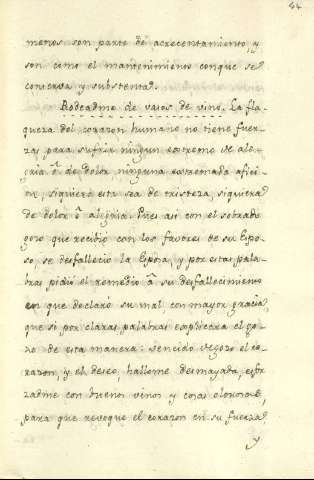 44
menos son parte de acrecentamiento, y
son como el mantenimiento con que se
conserva y substenta.
Rodeadme de vasos de vino. La fla-
queza del corazon humano no tiene fuer-
zas para sufrir ningun extremo de ale-
gria ô de dolor, ninguna extremada afici-
on, siquiera esta sea de tristeza, siquiera
de dolor ô alegria. Pues asi con el sobrado
gozo que recibió con los favores de su Espo-
so, se desfalleció la Esposa, y por estas pala-
bras pidió el remedio â su desfallecimiento
en que declaró su mal, con mayor gracia,
que si por claras palabras explicara el go-
zo de esta manera: Vencido el co-
razon, y el deseo, hallome desmayada, esfor
zadme con buenos vinos y cosas olorosas,
para que revoque el corazon en su fuerza
y